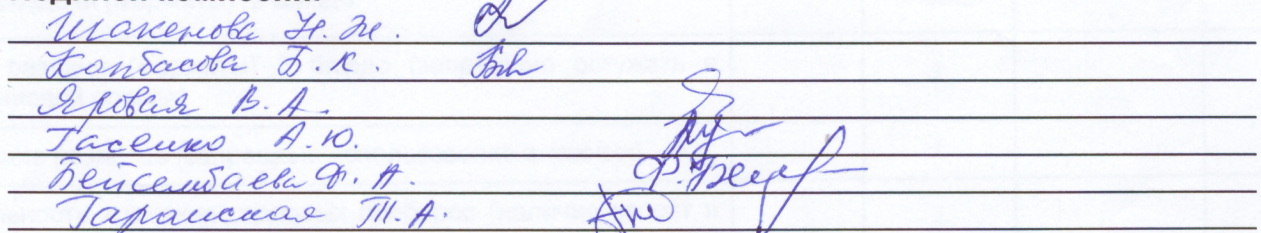 Шакенова Н.Ж.
Капбасова Б.К.
Яровая В.А.
Гасенко А.Ю.
Бейсембаева Ф.А. Ф.Бей
Тараиская Т.А.